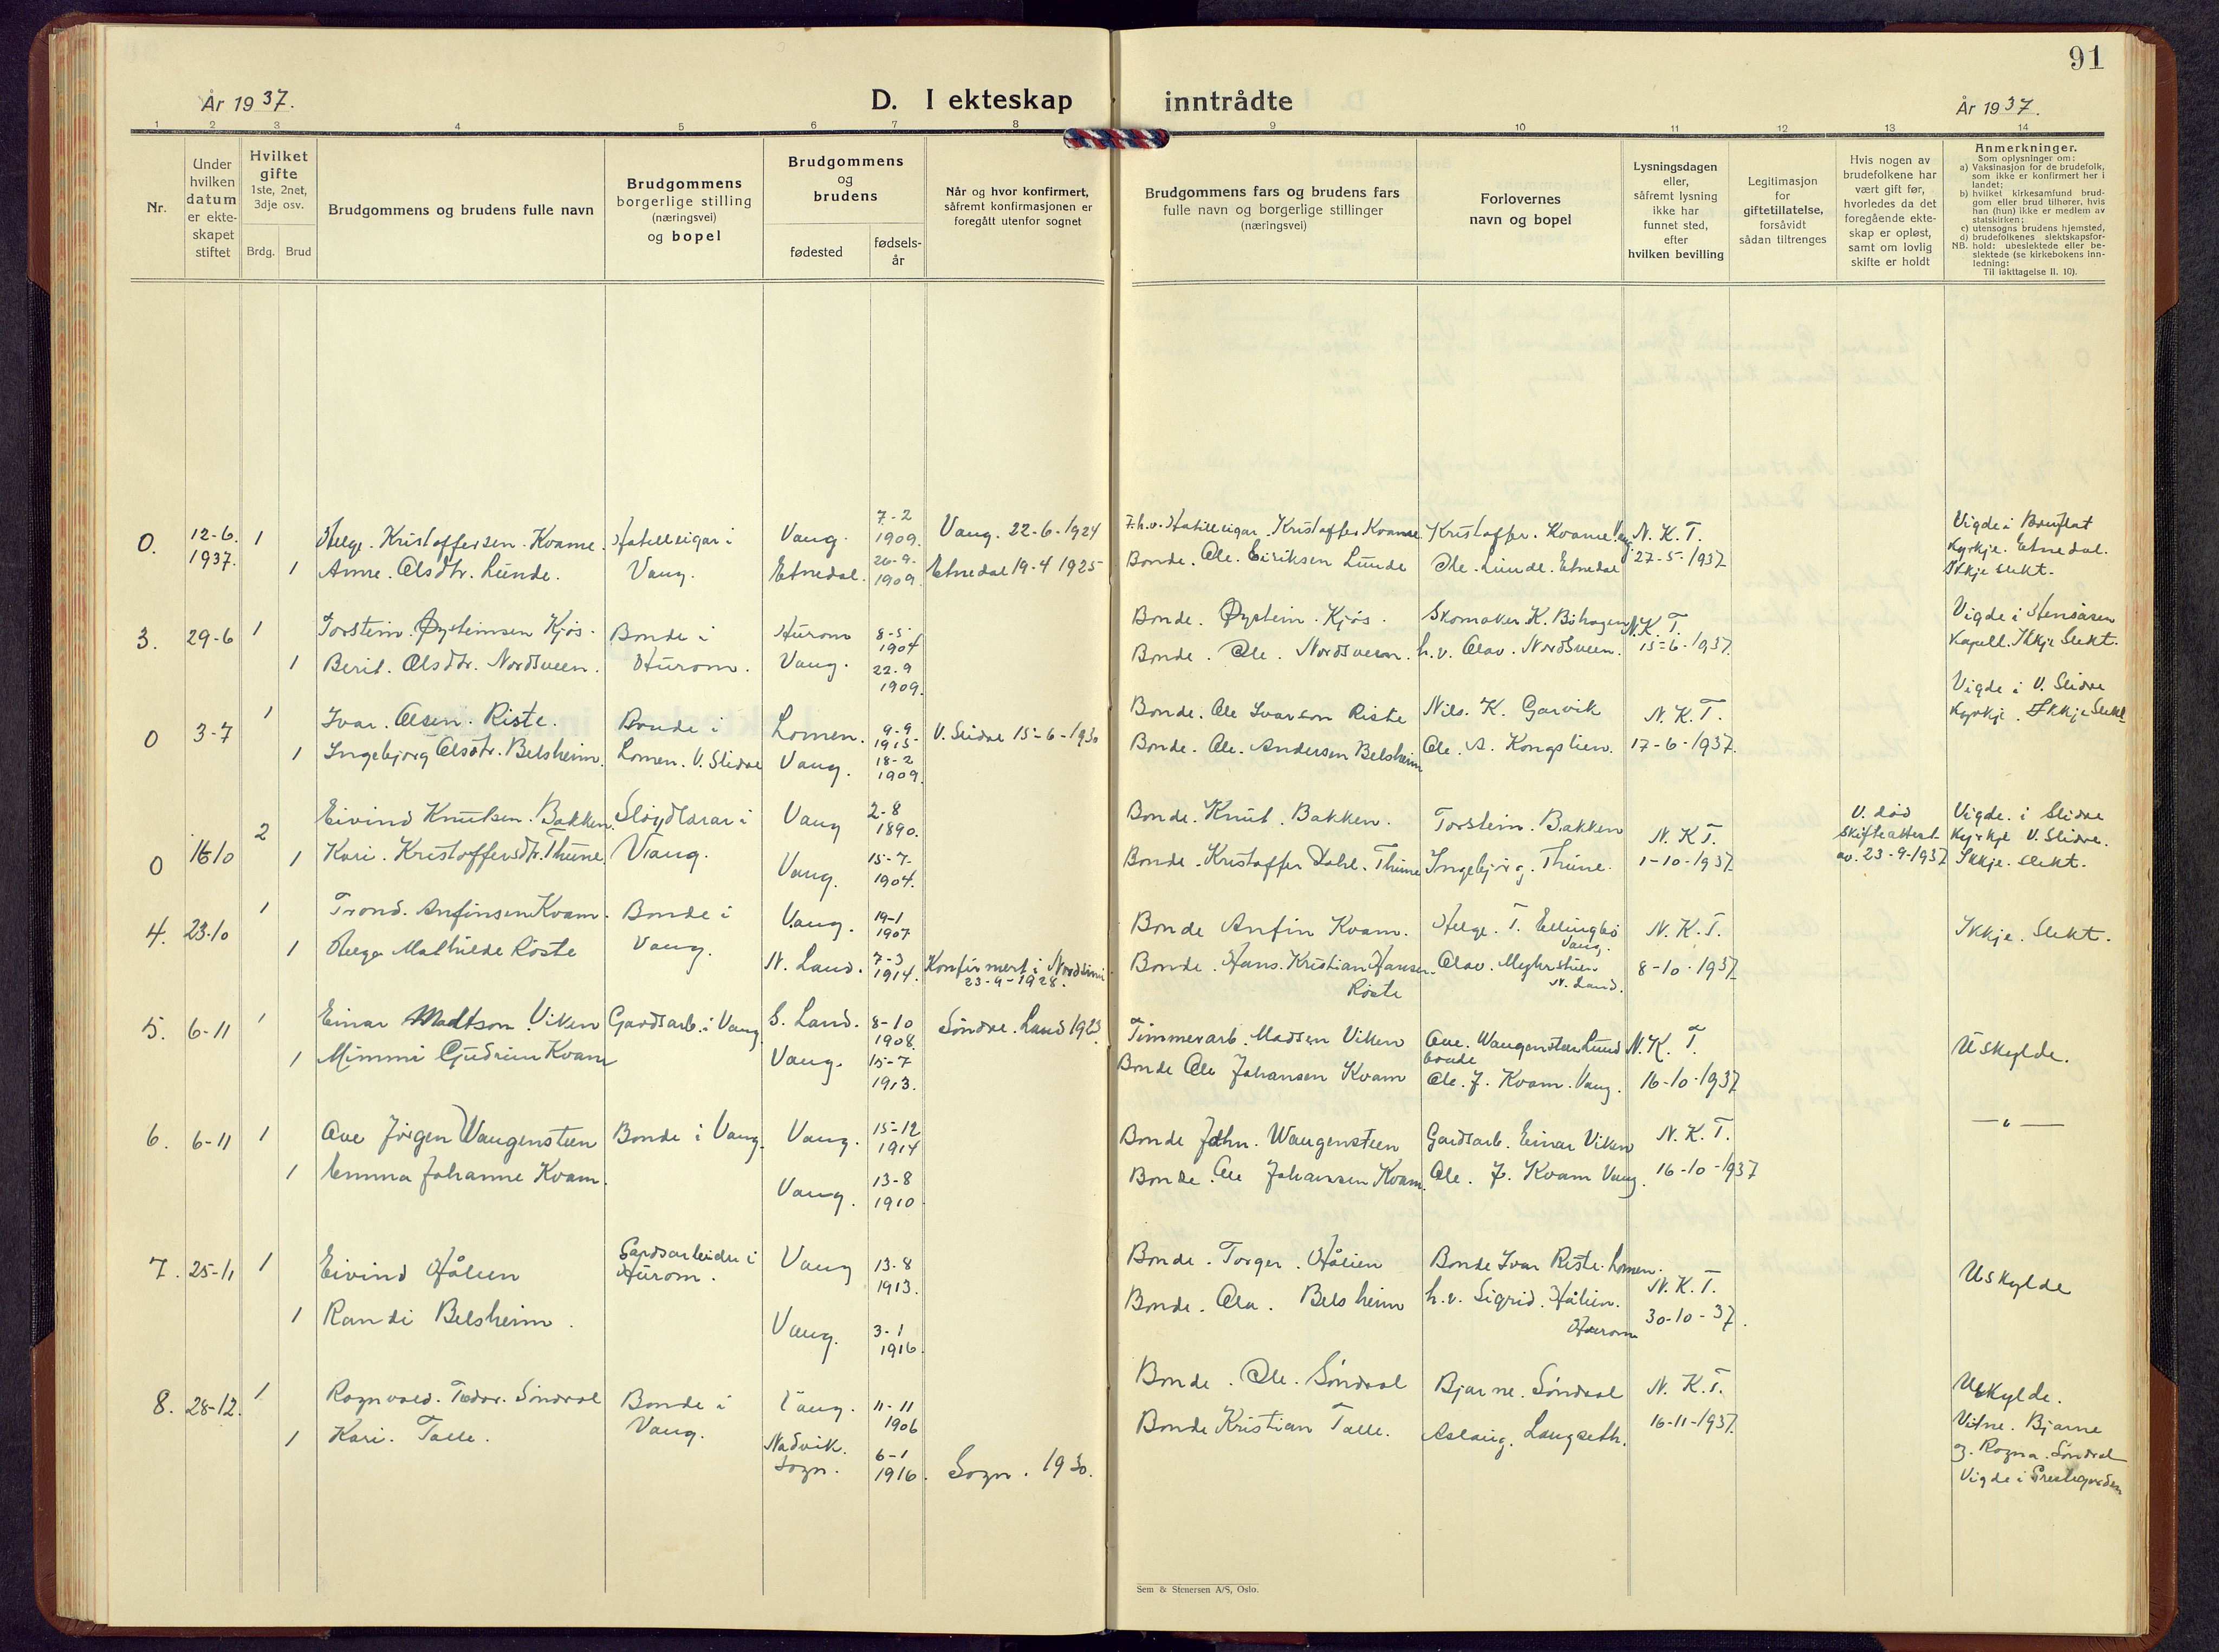 91
År 1937.
D. I ekteskap inntrådte
År 1937.
1 2 3 4 5 6 7 8 9 10 11 12 13 14
Nr.
Under
hvilken
datum
er ekte-
skapet
stiftet
Hvilket
gifte
1ste, 2net,
3dje osv.
Brdg. Brud
Brudgommens og brudens fulle navn
Brudgommens
borgerlige stilling
(næringsvei)
og bopel
Brudgommens
og
brudens
fødested
fødsels-
år
Når og hvor konfirmert,
såfremt konfirmasjonen er
foregått utenfor sognet
Brudgommens fars og brudens fars
fulle navn og borgerlige stillinger
(næringsvei)
Forlovernes
navn og bopel
Lysningsdagen
eller,
såfremt lysning
ikke har
funnet sted,
efter
hvilken bevilling
Legitimasjon
for
giftetillatelse,
forsåvidt
sådan tiltrenges
Hvis nogen av
brudefolkene har
vært gift før,
hvorledes da det
foregående ekte-
skap er opløst,
samt om lovlig
skifte er holdt
Anmerkninger.
Som oplysninger om:
a) Vaksinasjon for de brudefolk,
som ikke er konfirmert her i
landet;
b) hvilket kirkesamfund brud-
gom eller brud tilhører, hvis
han (hun) ikke er medlem av
statskirken;
c) utensogns brudens hjemsted,
d) brudefolkenes slektskapsfor-
NB. hold: ubeslektede eller be-
slektede (se kirkebokens inn-
ledning:
Til iakttagelse II. 10).
0. 12-6. 1937. 1 Helge. Kristoffersen. Kvame. Hotelleigar i Vang. Vang. 7-2 1909. Vang. 22-6-1924 F.h.v. Hotelleigar. Kristoffer Kvame. Kristoffer. Kvame. Vang N. K. T. Vigde i Bruflat
1 Anne. Olsdtr. Lunde. Etnedal. 26-9- 1909. Etnedal 19-4 1925 Bonde. Ole. Eiriksen Lunde Ole. Lunde. Etnedal 27-5-1937 kyrkje. Etnedal.
Ikkje slekt.
3. 29-6 1 Torstein. Øysteinsen Kjøs. Bonde i Hurom. Hurom 8-5 1904 Bonde. Øystein. Kjøs. Skomaker K. Böhagen N.K.T. Vigde i Stensåsen
1 Berit. Olsdtr. Nordsveen. Vang. 22.9 1909. Bonde. Ole. Nordsveen. h.v. Olav. Nordsveen. 15-6-1937. Kapell. Ikkje Slekt.
0 3-7 1 Ivar. Olsen. Riste. Bonde i Lomen. V. Slidre Lomen. 9-9 1915- V. Slidre 15-6-1930 Bonde. Ole Ivarson Riste Nils. K. Garvik N.K.T. Vigde i V. Slidre
1 Ingebjørg Olsdtr. Belsheim. Vang. 18-2 1909. Bonde. Ole. Andersen Belsheim Ole. A. Kongslien. 17-6-1937. kyrkje. Ikkje Slekt
0 16-10 2 Eivind Knutsen. Bakken. Sløydlærar i Vang. Vang 2-8 1890. Bonde. Knut. Bakken. Torstein. Bakken N. K T. V. død Vigde. i Slidre
1 Kari. Kristoffersdtr. Thune Vang. 15-7- 1904. Bonde. Kristoffer Dahl. Thune Ingebjørg. Thune. 1-10-1937 skifteattest av. 23-9-1937 Kyrkje V. Slidre.
Ikkje. slekt.
4. 23-10 1 Trond. Anfinsen Kvam. Bonde i Vang. Vang. 19-1 1907 Bonde Anfin Kvam. Helge. T. Ellingbö Vang. N.K.T. Ikkje. Slekt.
1 Helga Mathilde Röste N. Land. 7-3 1914. Konfirmert i Nordsinni 23-9-1928. Bonde. Hans. Kristian Hansen. Röste Olav. N. Land. 8-10-1937
5. 6-11 1 Einar Madtson Viken Gardsarb. i Vang S. Land. 8-10 1908. Søndre. Land 1923 Timmerarb. Madsen Viken Ove. Waugensteen Lund bonde N.K.T. Uskylde.
1 Mimmi Gudrun Kvam Vang. 15-7 1913. Bonde Ole Johansen Kvam Ole. J. Kvam. Vang. 16-10-1937
6. 6-11 1 Ove Jörgen Waugensteen Bonde i Vang. Vang. 15-12 1914 Bonde John. Waugensteen Gardsarb. Einar Viken N.K.T. — " —
1 Emma Johanne Kvam. Vang. 13-8 1910. Bonde. Ole Johansen Kvam. Ole. J. Kvam Vang. 16-10-1937
7. 25-11 1 Eivind Hålien Gardsarbeider i Hurom. Vang 13-8 1913. Bonde. Torger. Hålien Bonde Ivar Riste. Lomen. N.K.T. Uskylde
1 Randi Belsheim. Vang. 3-1 1916. Bonde. Ola. Belsheim h.v. Sigrid. Hålien. Hurom 30-10-37.
8. 28-12. 1 Rognvald. Teodor. Söndrol Bonde i Vang. Vang. 11-11 1906 Bonde. Ole. Söndrol Bjarne. Söndrol N. K.T. Uskylde.
1 Kari. Talle. Nadvik. Sogn. 6-1 1916. Sogn. 1930. Bonde Kristian Talle. Aslaug. Langseth. 16-11-1937. Vitne. Bjarne
og. Rogna. Söndrol
Vigde i Prestegarden
Sem & Stenersen A/S, Oslo.